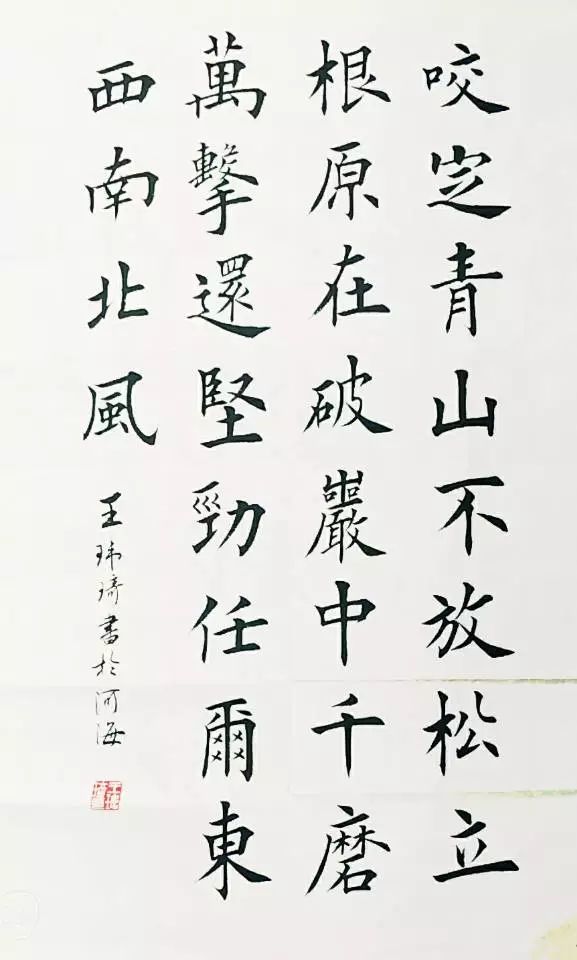 咬定青山不放松立
根原在破巖中千磨
萬擊還堅勁任爾東
西南北風
王玮琦書於河海